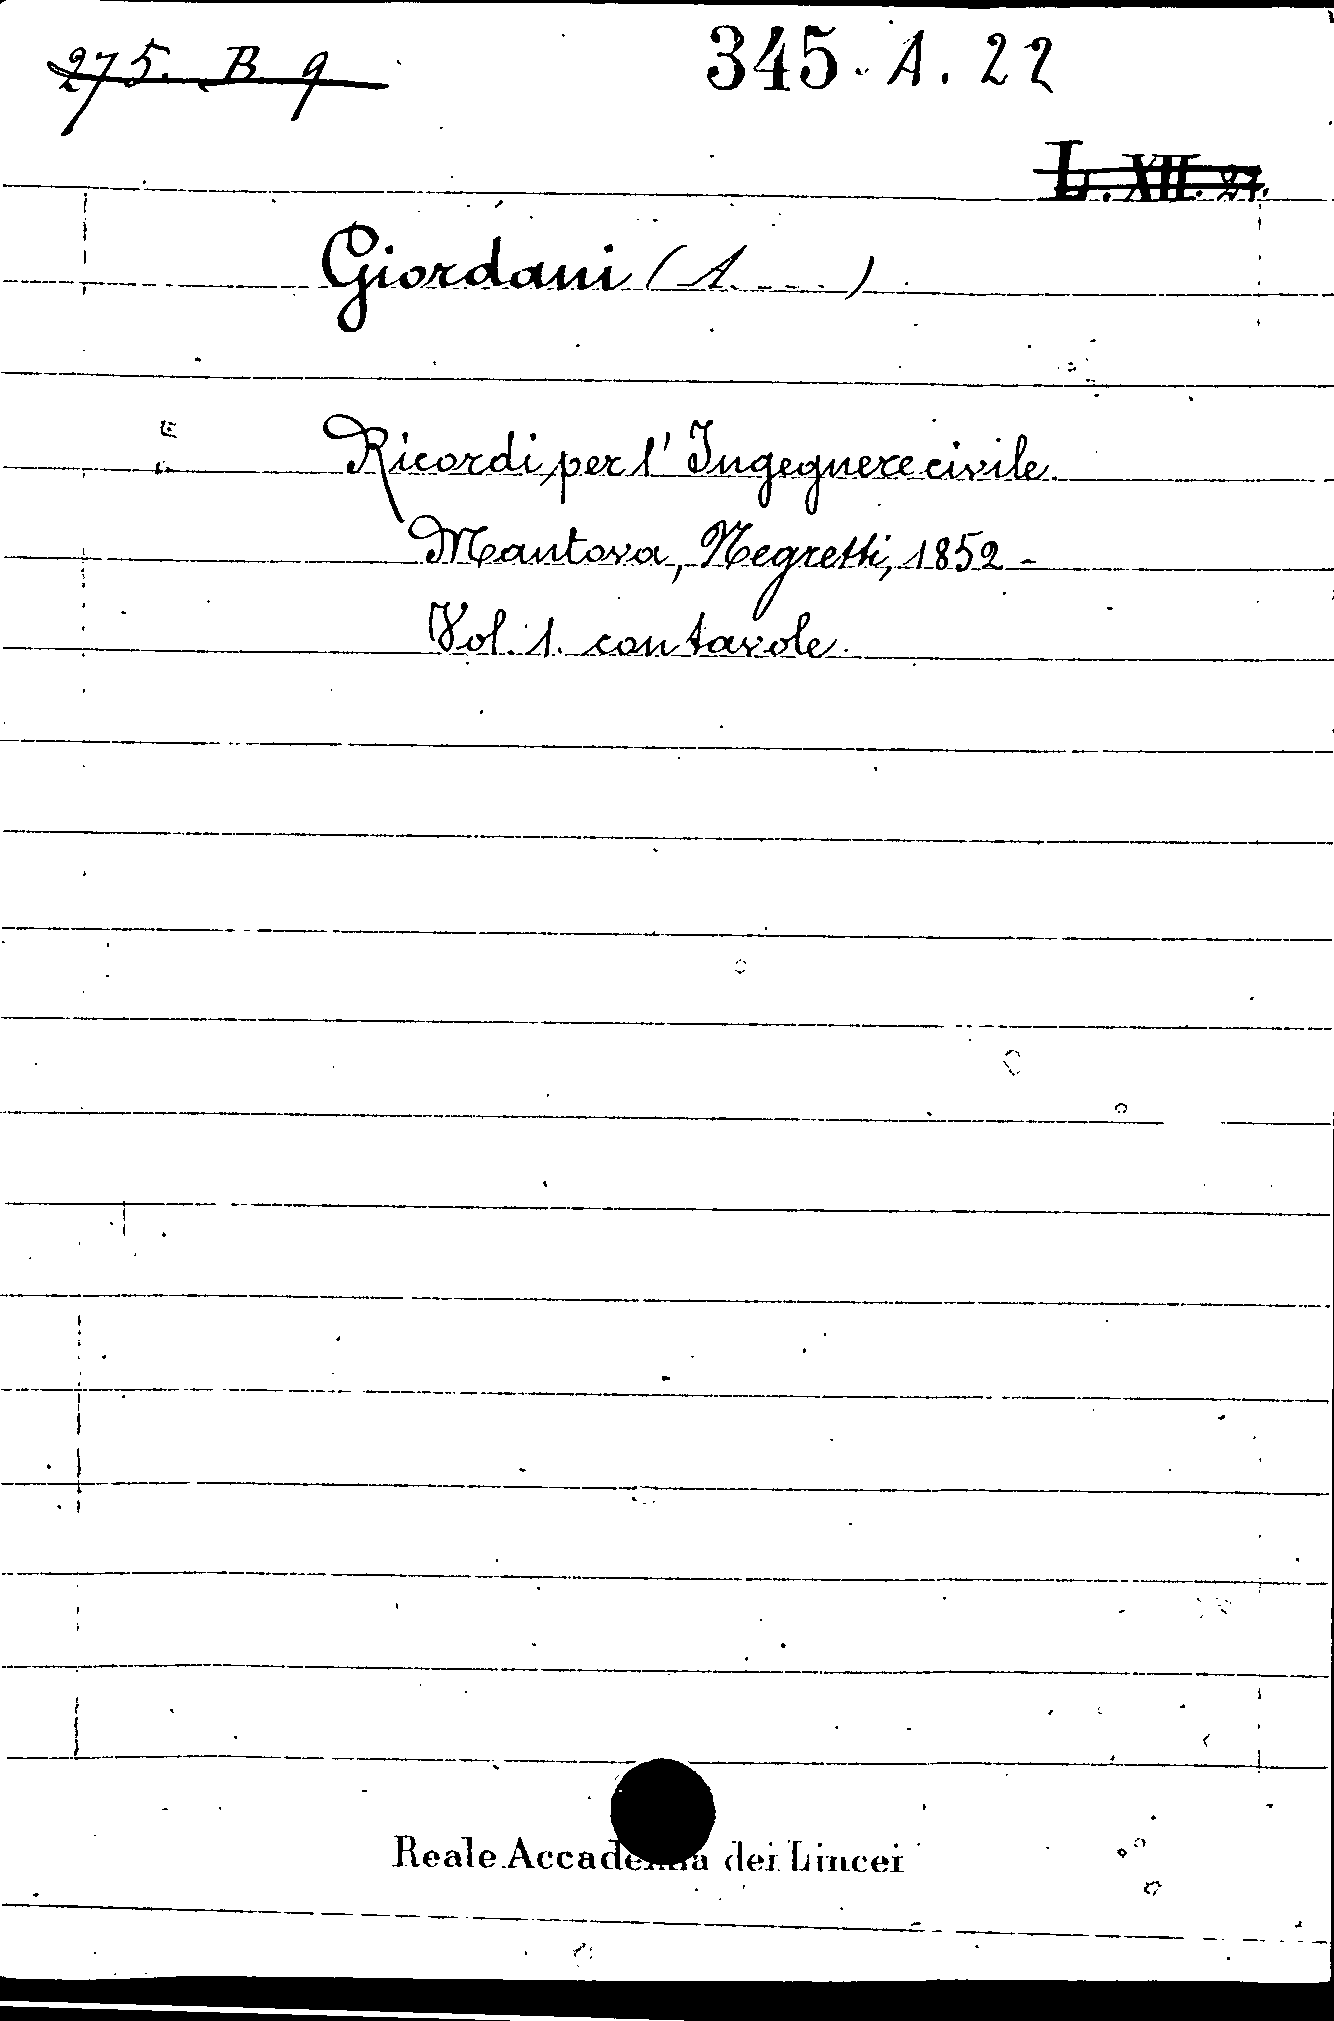 275. B 9
345. A. 22
L. XII. 27.
Giordani (A. - - .)
Ricordi per l'Ingegnere civile.
Mantova, Negretti, 1852 -
Vol. 1. con tavole.
Reale Accademia dei Lincei